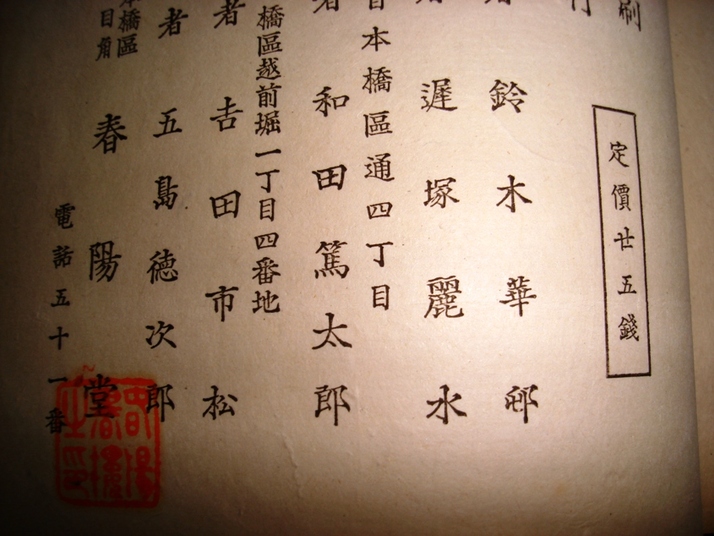 刷
行
定價廿五錢
鈴木華邨
遅塚麗水
日本橋區通四丁目
者 和田篤太郎
橋區越前堀一丁目四番地
者 吉田市松
者 五島徳次郎
本橋區
目角
春陽堂
電話五十一番